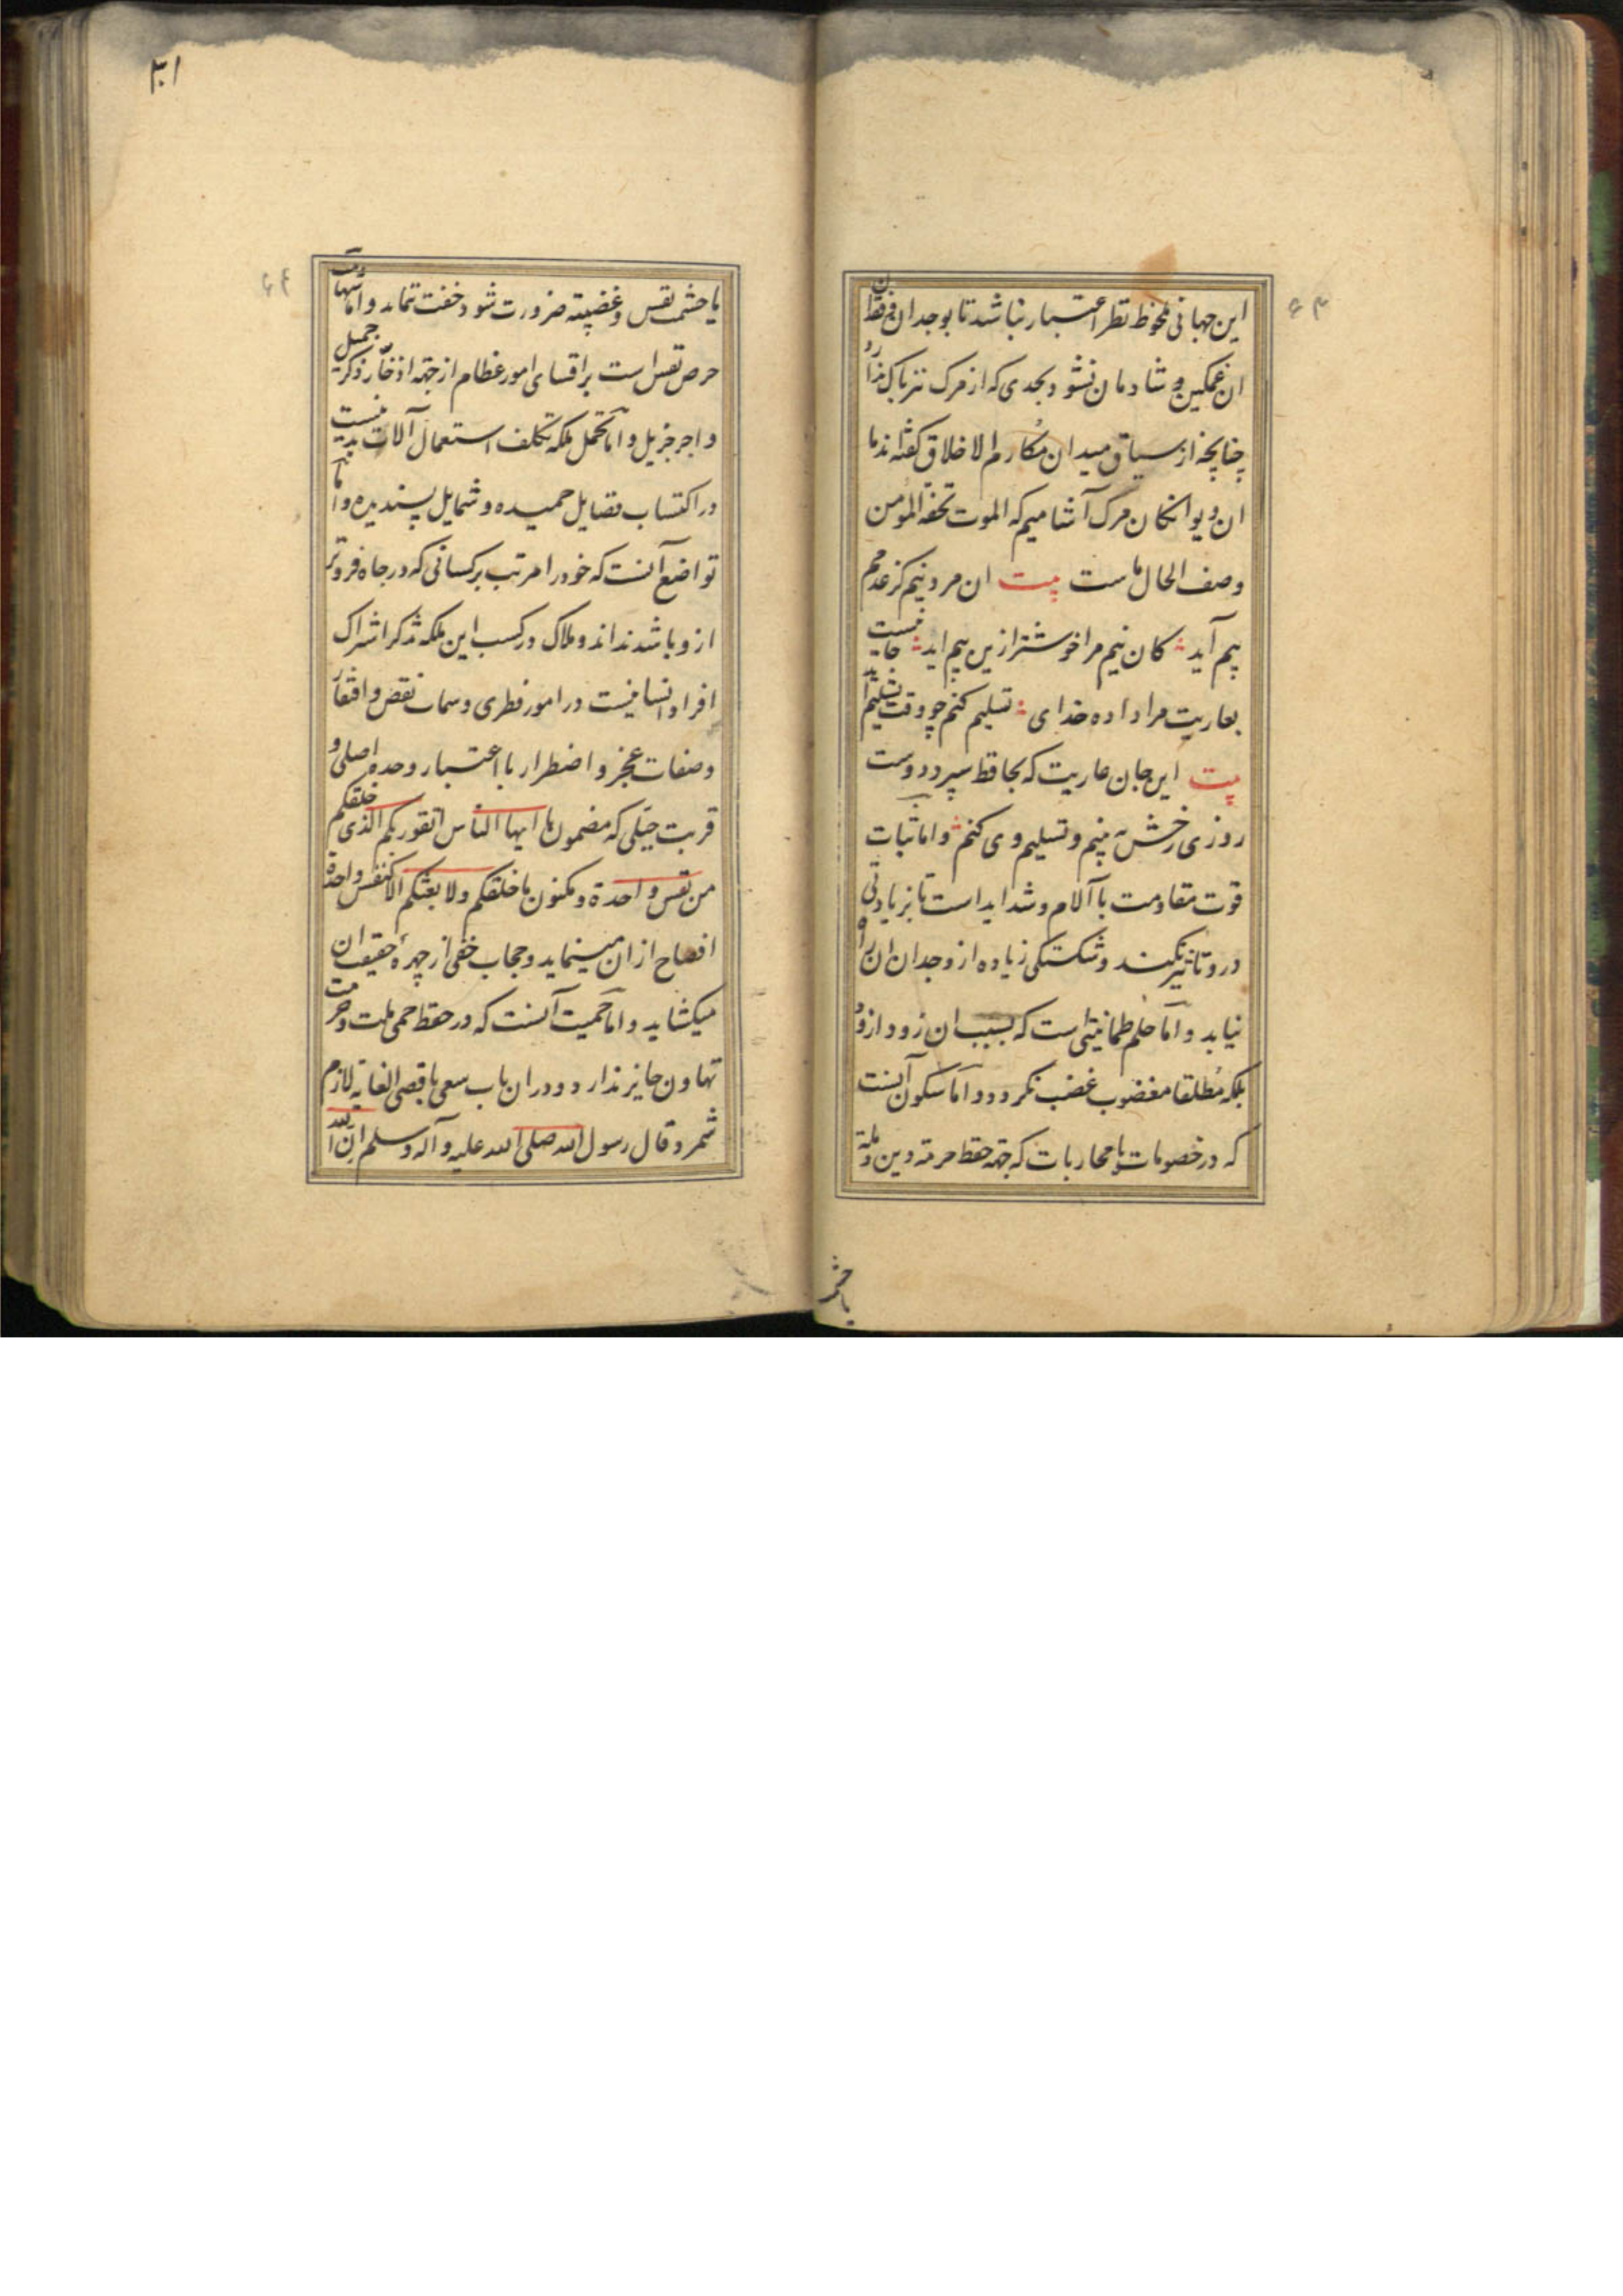 این جهانی ملحوظ نظر اعتبار نباشد تا بوجدان و فقدان
ان غمکین و شادمان نشود بحدی که از مرک نیز باک ندارد
چنانچه از سیاق میدان مکارم الاخلاق کفته اند ما
ان دیوانکان مرک آشامیم که الموت تحفة المؤمن
وصف الحال ماست بیت ان مرد نیم کز عدمم
بیم آید کان نیم مرا خوشتر ازین بیم اید جانیست
بعاریت مرا داده خدای تسلیم کنم چو وقت تسلیم آید
بیت این جان عاریت که بحافظ سپرد دوست
روزی رخش ببینم و تسلیم وی کنم و اما ثبات
قوت مقاومت با آلام و شداید است تا بزیادتی
درو تاثیر نکند و شکستکی زیاده از وجدان ان راه
نیابد و اما حلم طمانیتی است که بسبب ان زود از
بلکه مطلقا مغضوب غضب نکردد و اما سکون آنست
که در خصومات یا محاربات که جهة حفظ حرمة دین و ملة
یاحشم
۳۰۱
یا حشمت نفس و غضبیة ضرورت شود خفت ننماید و اما شهامت
حرص نفس است بر اقتنای امور عظام از جهة ادخار ذکر جمیل
و اجر جزیل و اما تحمل ملکه تکلف استعمال آلات بدنیست
در اکتساب فضایل حمیده و شمایل پسندیده و اما
تواضع آنست که خود را مرتب بر کسانی که در جاه فروتر
ازو باشند نداند و ملاک در کسب این ملکه تذکر اشراک
افراد انسانیست در امور فطری و سمات نقص و افتقار
وصفات عجز و اضطرار با اعتبار وحده اصلی و
قربت جبلی که مضمون یا ایها الناس اتقو ربکم الذی خلقکم
من نفس واحدة و مکنون ما خلقکم ولا بعثکم الا کنفس واحدة
افصاح از ان مینماید و حجاب خفی از چهره حقیقت ان
میکشاید و اما حمیت آنست که در حفظ حمی ملت و حرمت
تهاون جایز ندارد و دران باب سعی باقصی الغایة لازم
شمرد و قال رسول الله صلی الله علیه و آله و سلم ان الله